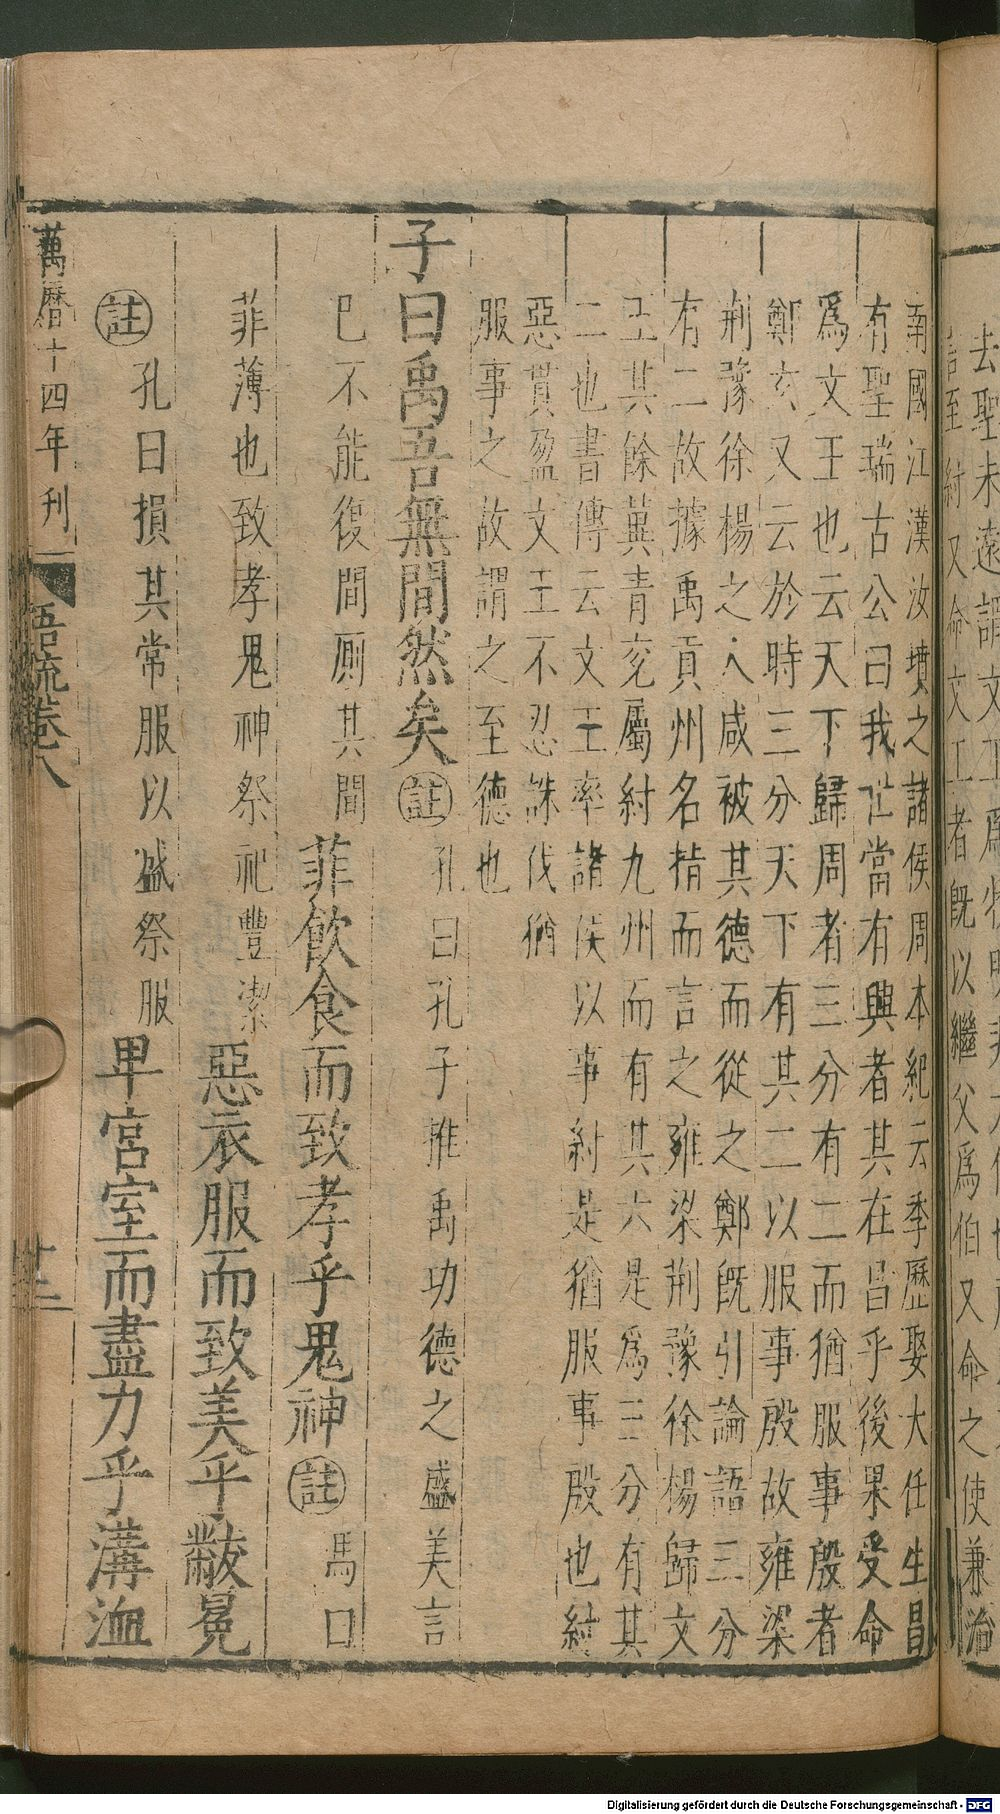 去聖未遠謂文王爲
紂又命文王者既以繼父爲伯又命之使兼治
南國江漢汝墳之諸侯周本紀云季歷娶大任生昌
有聖瑞古公曰我世當有興者其在昌乎後果受命
爲文王也云天下歸周者三分有二而猶服事殷者
鄭玄又云於時三分天下有其二以服事殷故雍梁
荆豫徐楊之人咸被其德而從之鄭既引論語三分
有二故據禹貢州名指而言之雍梁荆豫徐楊歸文
王其餘冀青兖屬紂九州而有其六是爲三分有其
二也書傳云文王率諸侯以事紂是猶服事殷也紂
惡貫盈文王不忍誅伐猶
服事之故謂之至德也
子曰禹吾無間然矣註孔曰孔子推禹功德之盛美言
已不能復間厠其間菲飲食而致孝乎鬼神註馬曰
菲薄也致孝鬼神祭祀豐潔惡衣服而致美乎黻冕
註孔曰損其常服以盛祭服卑宮室而盡力乎溝洫
萬曆十四年刋 語疏卷八 十三
Digitalisierung gefördert durch die Deutsche Forschungsgemeinschaft - DFG